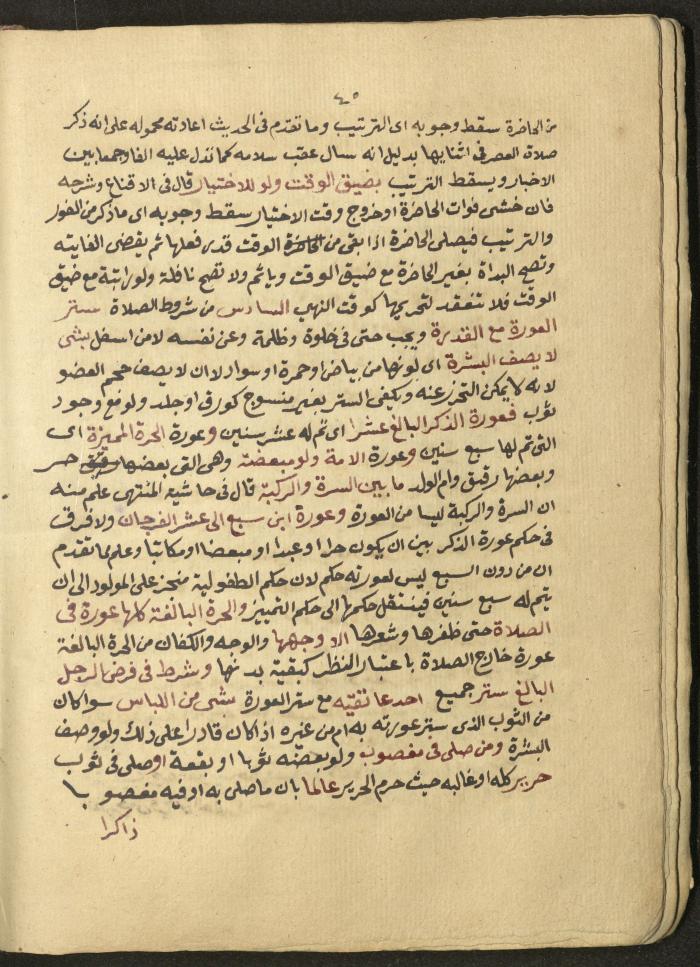 ٤٥
من الحاضرة سقط وجوبه اى الترتيب وما تقدم فى الحديث اعادته محموله على انه ذكر
صلاة العصر فى اثنايها بدليل انه سال عقب سلامه كما تدل عليه الفا وجمعا بين
الاخبار ويسقط الترتيب بضيق الوقت ولو للاختيار قال فى الاقناع وشرحه
فان خشى فوات الحاضرة او خروج وقت الاختيار سقط وجوبه اى ما ذكر من الفور
والترتيب فيصلى الحاضرة اذا بقى من الوقت قدر فعلها ثم يقضى الفايته
وتصح البداة بغير الحاضرة مع ضيق الوقت وياثم ولا تصح نافلة ولو راتبة مع ضيق
الوقت فلا تنعقد لتحريمها كوقت النهى السادس من شروط الصلاة ستر
العورة مع القدرة ويجب حتى فى خلوة وظلمة وعن نفسه لا من اسفل بشى
لا يصف البشرة اى لونها من بياض او حمرة او سواد لا ان لا يصف حجم العضو
لانه لا يمكن التحرز عنه ويكفى الستر بغير منسوج كورق او جلد ولو مع وجود
ثوب فعورة الذكر البالغ عشرا اى تم له عشر سنين وعورة الحرة المميزة اى
التى تم لها سبع سنين وعورة الامة ولو مبعضة وهى التى بعضها حر
وبعضها رقيق وام الولد ما بين السرة والركبة قال فى حاشية المنتهى علم منه
ان السرة والركبة ليسا من العورة وعورة ابن سبع الى عشر الفرجان ولا فرق
فى حكم عورة الذكر بين ان يكون حرا وعبدا او مبعضا او مكاتبا وعلم مما تقدم
ان من دون السبع ليس لعورته حكم لان حكم الطفولية منجز على المولود الى ان
يتم له سبع سنين فينتقل حكمها الى حكم التمييز والحرة البالغة كلها عورة فى
الصلاة حتى ظفرها وشعرها الا وجهها والوجه والكفان من الحرة البالغة
عورة خارج الصلاة باعتبار النظر كبقية بدنها وشرط فى فرض الرجل
البالغ ستر جميع احد عاتقيه مع ستر العورة بشى من اللباس سوا كان
من الثوب الذى ستر عورته به ام من غيره اذا كان قادرا على ذلك ولو وصف
البشرة ومن صلى فى مغصوب ولو بعضه ثوبا او بقعة او صلى فى ثوب
حرير كله او غالبه حيث حرم الحرير عالما بان ما صلى به او فيه مغصوبا
ذاكرا